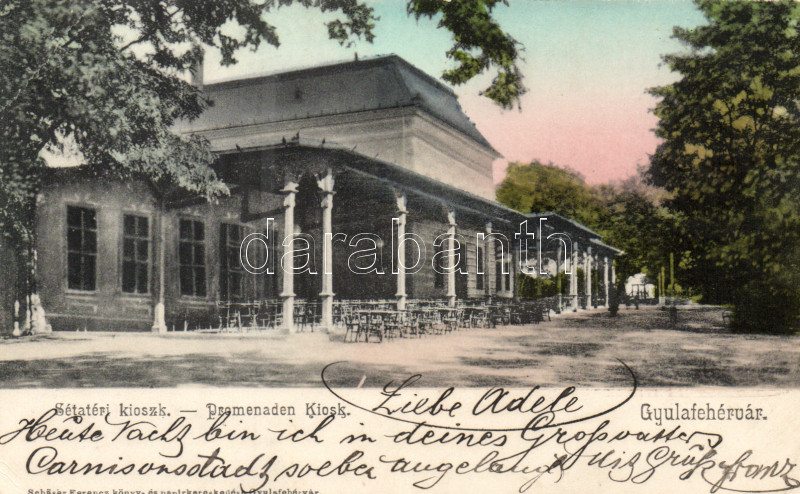 darabanth.com
Sétatéri kioszk. — Promenaden Kiosk.
Gyulafehérvár.
Liebe Adele
Heute Nacht bin ich in deines Großvaters
Garnisonsstadt soeben angelangt Mit Gruß Franz
Schäser Ferencz könyv- és papirkereskedése Gyulafehérvár